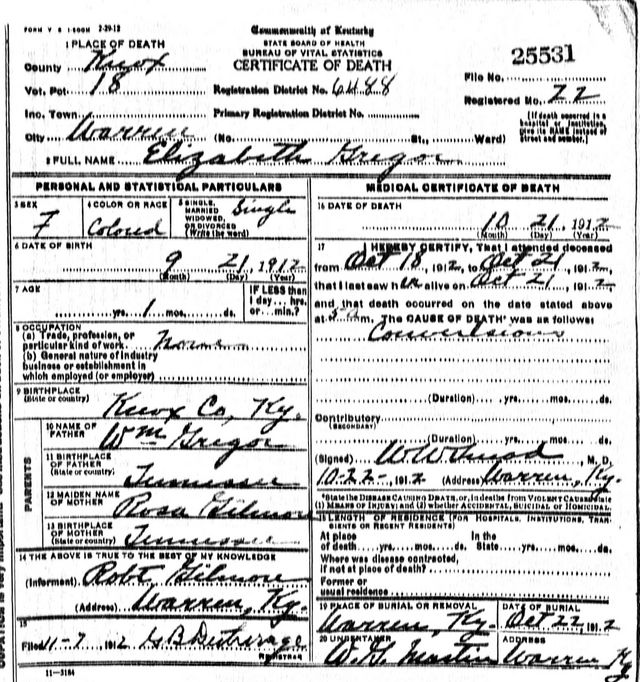 FORM V S 1-500M 2-29-12
Commonwealth of Kentucky
STATE BOARD OF HEALTH
BUREAU OF VITAL STATISTICS
CERTIFICATE OF DEATH
25531
1 PLACE OF DEATH
County Knox
Vot. Pct. 18
Registration District No. 6488
File No.
Inc. Town
Primary Registration District No.
Registered No. 22
City Warren (No. St., Ward)
[If death occurred in a hospital or institution, give its NAME instead of street and number.]
2 FULL NAME Elizabeth Gregor
PERSONAL AND STATISTICAL PARTICULARS
3 SEX F
4 COLOR OR RACE Colored
5 SINGLE, MARRIED WIDOWED, OR DIVORCED (Write the word) Single
6 DATE OF BIRTH
9 21, 1912
(Month) (Day) (Year)
7 AGE
yrs. 1 mos. ds.
IF LESS than 1 day... hrs. or... min.?
8 OCCUPATION
(a) Trade, profession, or
particular kind of work
(b) General nature of industry
business or establishment in
which employed (or employer)
9 BIRTHPLACE
(State or country) Knox Co, Ky.
PARENTS
10 NAME OF FATHER Wm Gregor
11 BIRTHPLACE OF FATHER (State or country) Tennessee
12 MAIDEN NAME OF MOTHER Rosa Gilmore
13 BIRTHPLACE OF MOTHER (State or country) Tennessee
14 THE ABOVE IS TRUE TO THE BEST OF MY KNOWLEDGE
(Informant) Robt Gilmore
(Address) Warren, Ky.
15
Filed 11-7, 1912 REGISTRAR
11-3184
MEDICAL CERTIFICATE OF DEATH
16 DATE OF DEATH
10 21, 1912
(Month) (Day) (Year)
17 I HEREBY CERTIFY, That I attended deceased
from Oct 18, 1912, to Oct 21, 1912,
that I last saw alive on Oct 21, 1912
and that death occurred on the date stated above
at 5 a m. The CAUSE OF DEATH* was as follows:
Convulsions
(Duration) yrs. mos. ds.
Contributory
(SECONDARY)
(Duration) yrs. mos. ds.
(Signed) M. D.
10-22-, 1912 (Address) Warren, Ky.
*State the DISEASE CAUSING DEATH, or, in deaths from VIOLENT CAUSES state
(1) MEANS OF INJURY; and (2) whether ACCIDENTAL, SUICIDAL OR HOMICIDAL.
18 LENGTH OF RESIDENCE (FOR HOSPITALS, INSTITUTIONS, TRANSIENTS OR RECENT RESIDENTS)
At place In the
of death yrs. mos. ds. State yrs. mos. ds.
Where was disease contracted,
if not at place of death?
Former or
usual residence
19 PLACE OF BURIAL OR REMOVAL Warren, Ky.
DATE OF BURIAL Oct 22, 1912
20 UNDERTAKER W. G. Martin
ADDRESS Warren Ky